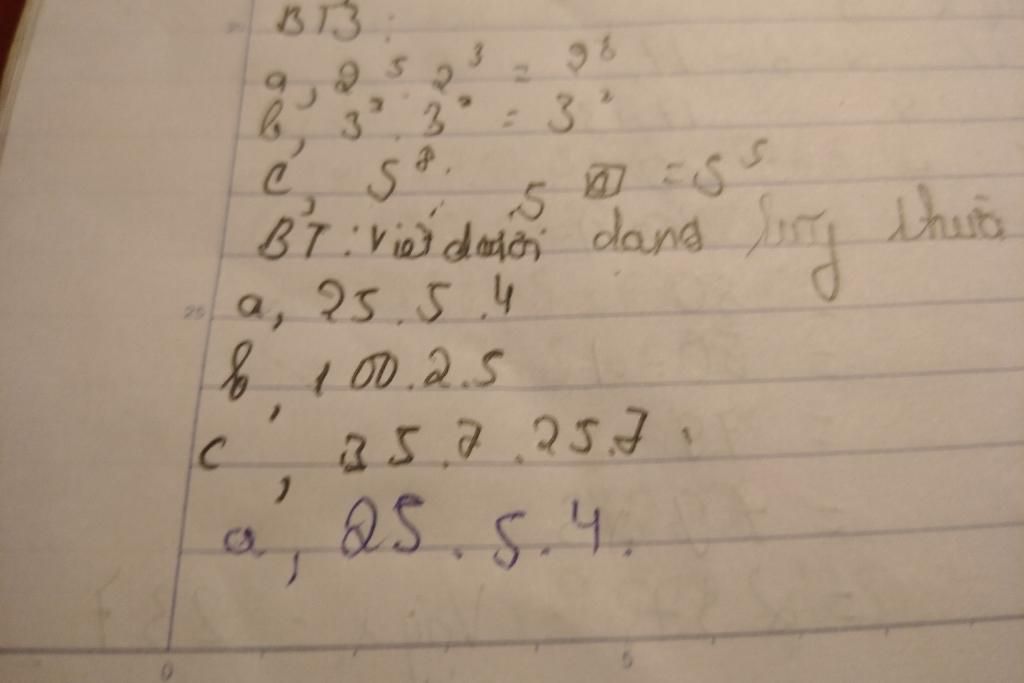 BT3:
a, 2⁵ . 2³ = 2⁸
b, 3² . 3² = 3²
c, 5⁸ . 5 = 5⁵
BT: Viết dưới dạng luỹ thừa
25
a, 25.5.4
b, 100.2.5
c, 35.7.25.7.
a, 25.5.4.
0 5